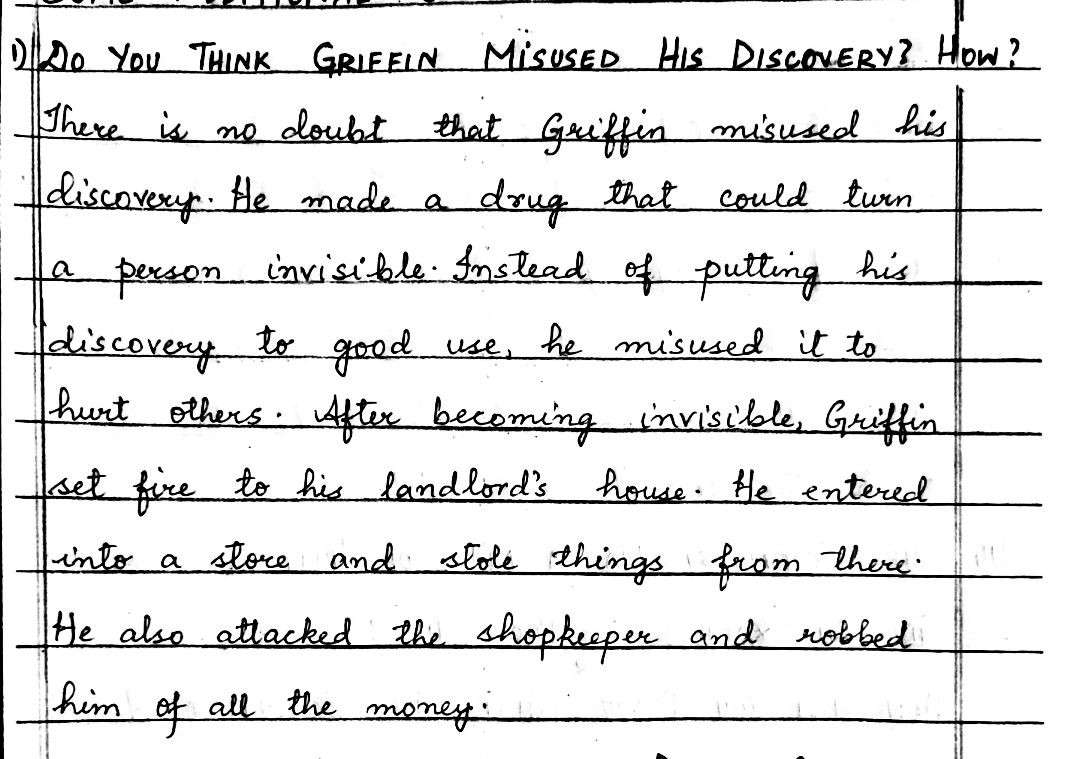 1) DO YOU THINK GRIFFIN MISUSED HIS DISCOVERY? HOW?
There is no doubt that Griffin misused his
discovery. He made a drug that could turn
a person invisible. Instead of putting his
discovery to good use, he misused it to
hurt others. After becoming invisible, Griffin
set fire to his landlord's house. He entered
into a store and stole things from there.
He also attacked the shopkeeper and robbed
him of all the money.